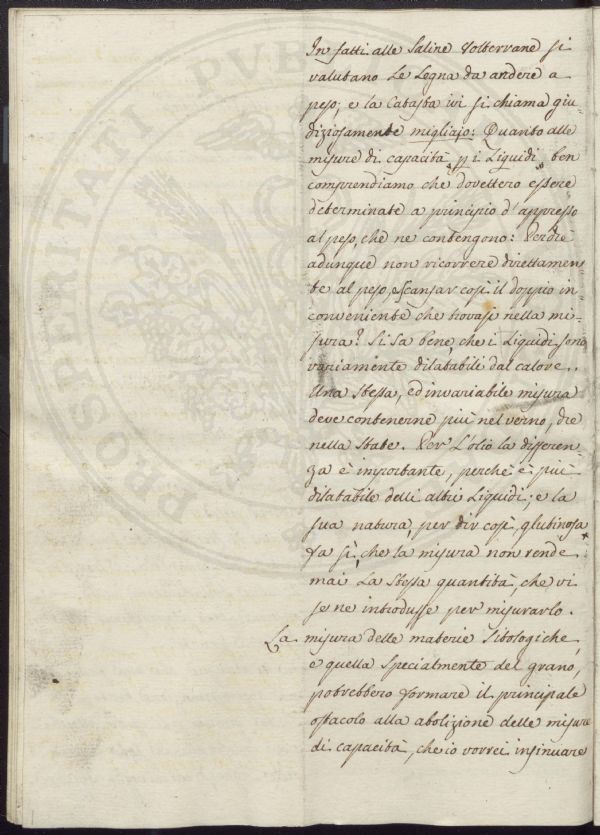 In fatti alle Saline Volterrane si
valutano le Legna da ardere a
peso; e la Catasta ivi si chiama giu-
diziosamente migliajo: Quanto alle
misure di capacità p i Liquidi ben
comprendiamo che dovettero essere
determinate a principio d'appresso
al peso, che ne contengono: Perchè
adunque non ricorrere direttamen-
te al peso, e scansar così il doppio in
conveniente che trovasi nella mi-
sura? Si Sa bene, che i Liquidi sono
variamente dilatabili dal calore.
Una stessa, ed invariabile misura
deve contenerne più nel verno, che
nella state. Per l'olio la differen
za è importante, perchè è più
dilatabile delli altri Liquidi; e la
sua natura, per dir così, glutinosa
fa sì, che la misura non rende
mai La stessa quantità, che vi
se ne introdusse per misurarlo.
La misura delle materie Sitologiche,
e quella specialmente del grano,
potrebbero formare il principale
ostacolo alla abolizione delle misure
di capacità, che io vorrei insinuare
PROSPERITATI PVB